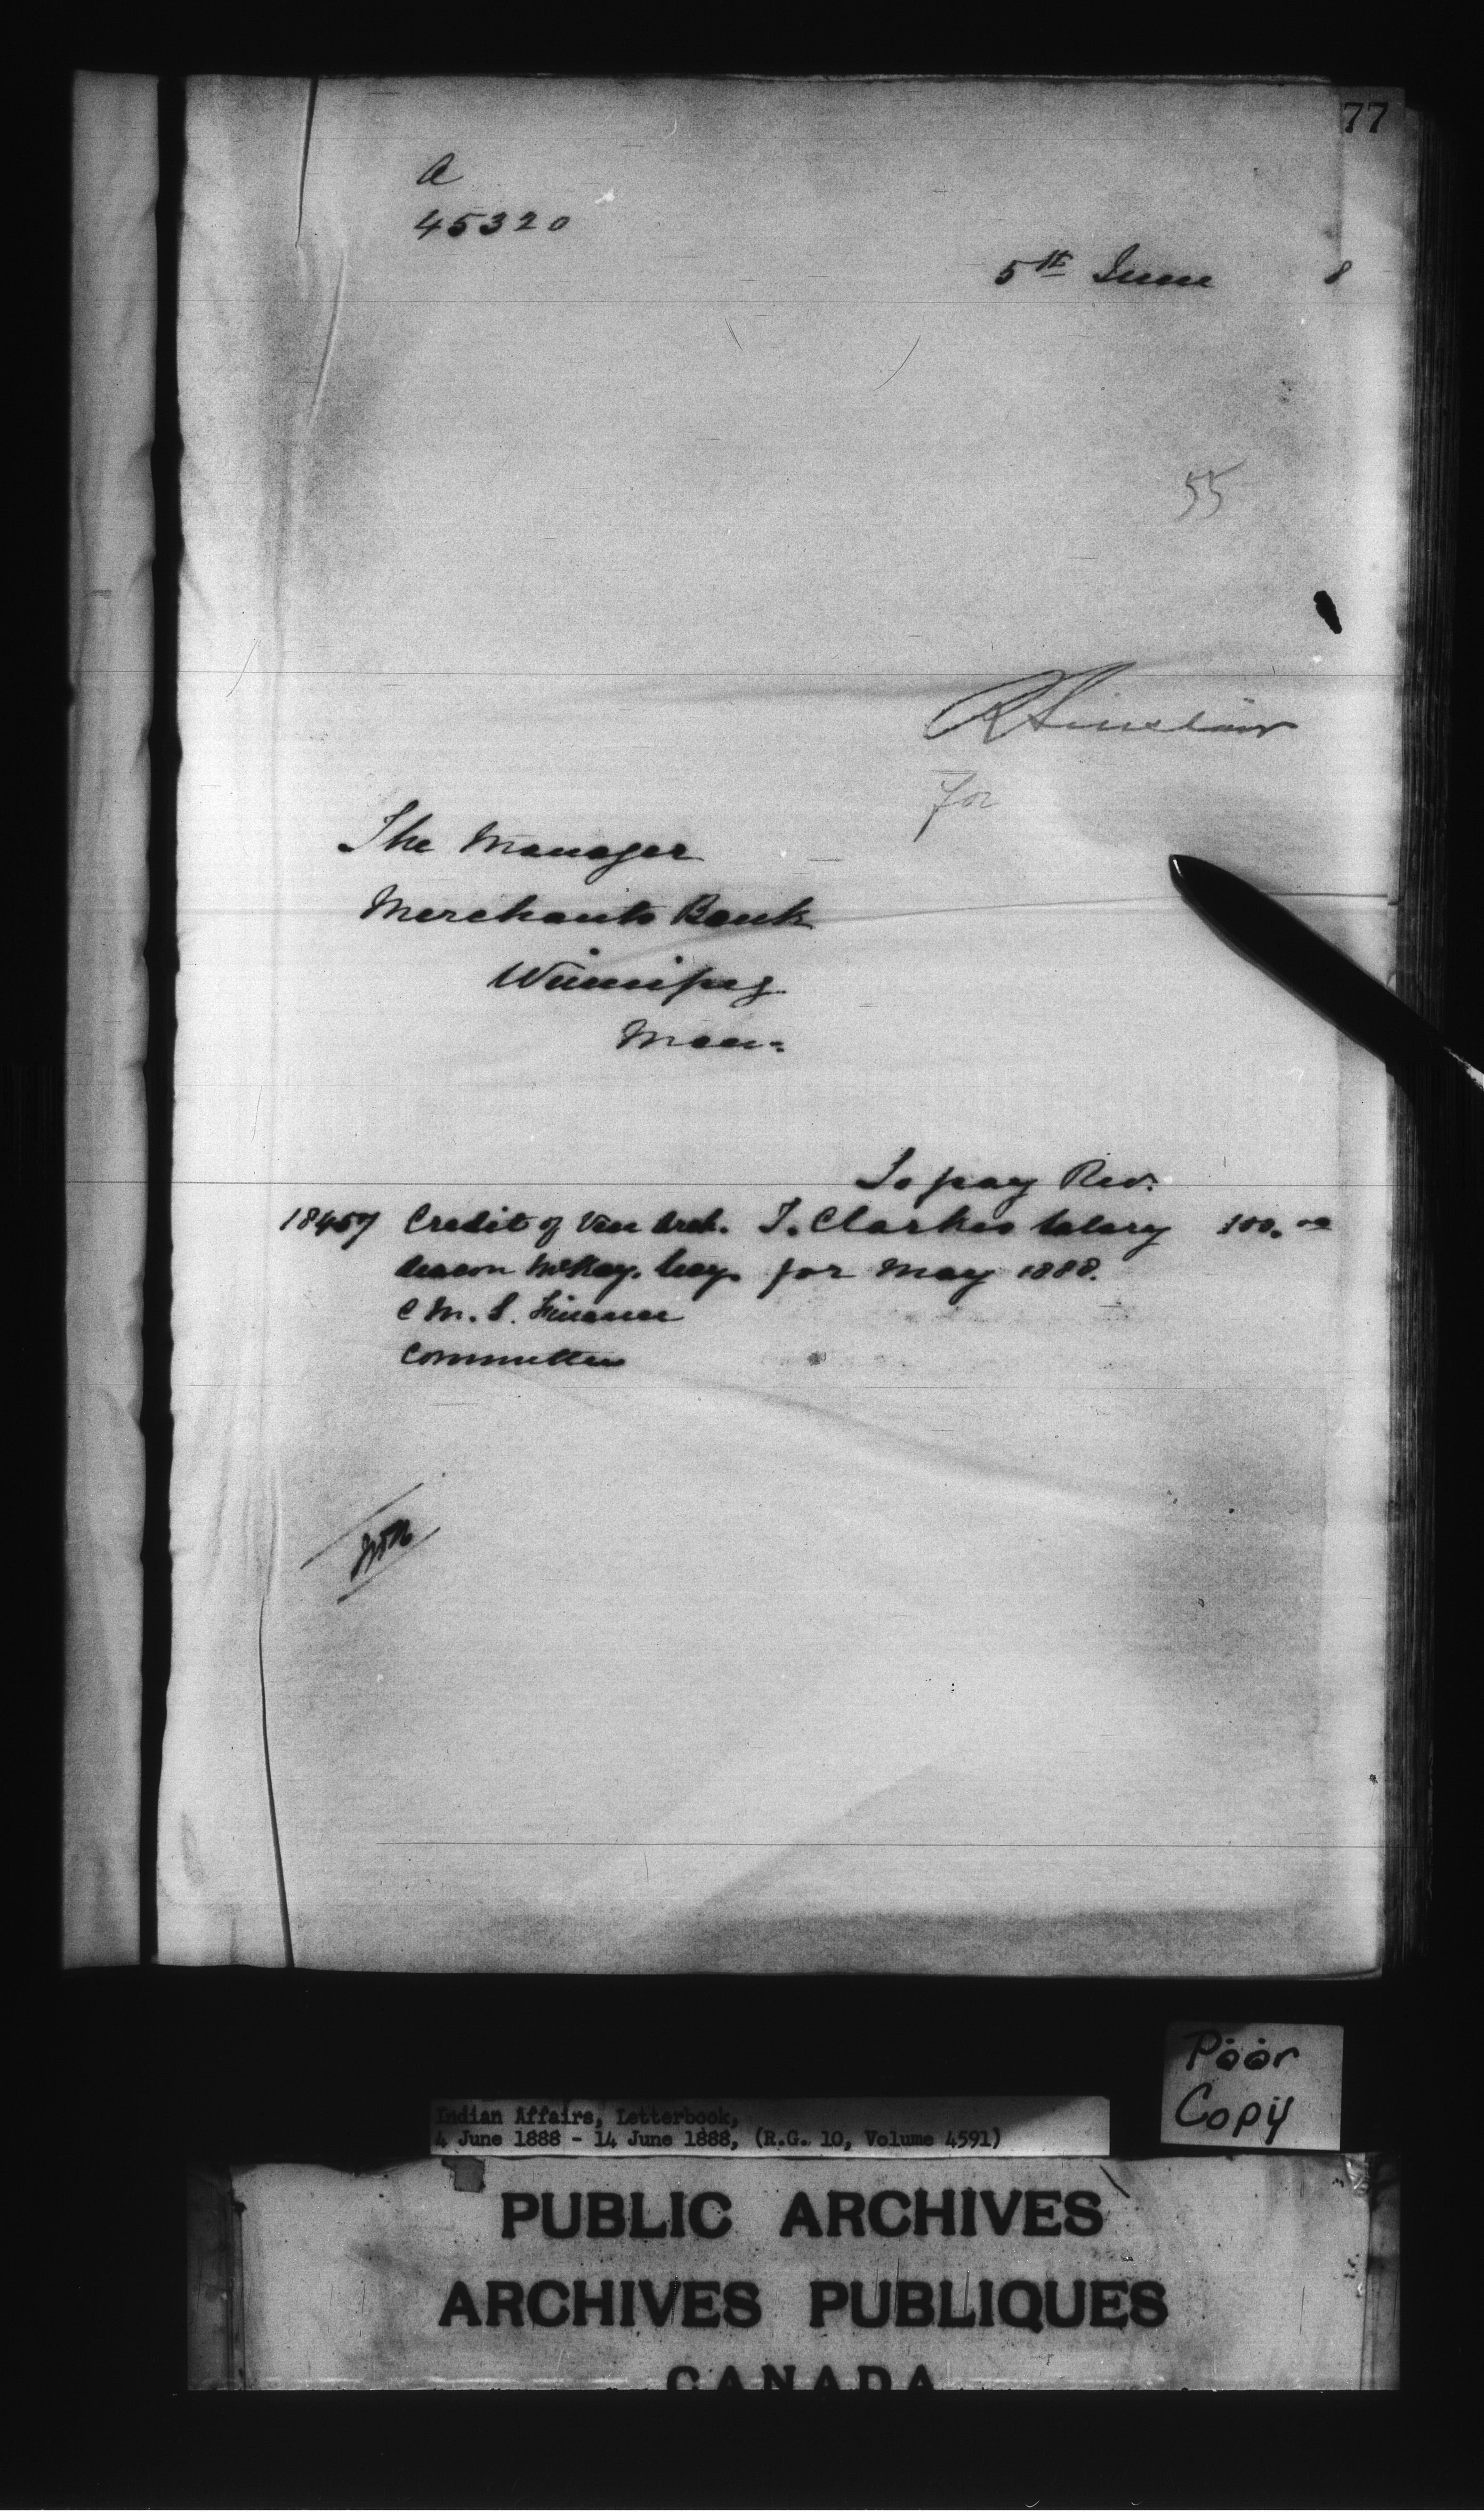 77
A
45320
5th June 8
55
R Sinclair
for
The Manager
Merchants Bank
Winnipeg
Man.
To pay Rev.
18457 Credit of Ven Arch. T. Clarkes Salary 100.00
deacon McKay. Secy. for May 1888.
C M. S. Finance
Committee
Poor
Copy
Indian Affairs, Letterbook,
4 June 1888 - 14 June 1888, (R.G. 10, Volume 4591)
PUBLIC ARCHIVES
ARCHIVES PUBLIQUES
CANADA